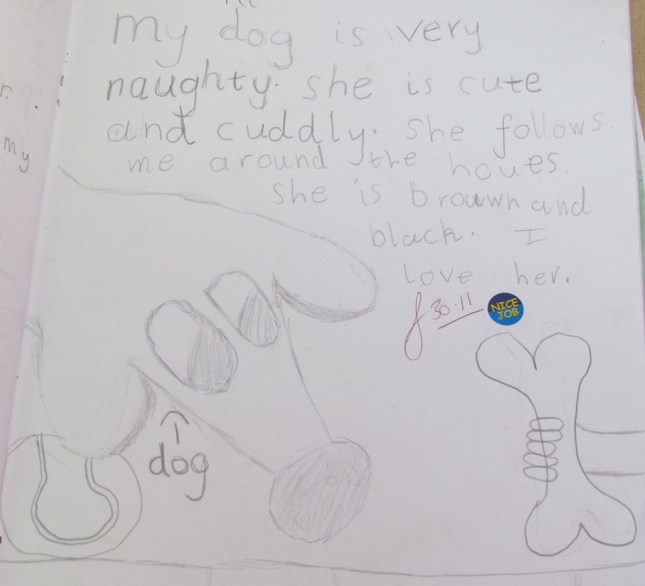 my dog is very
naughty. she is cute
and cuddly. she follows
me around the houes.
she is brouwn and
black. I
love her.
30.11
NICE
JOB
dog
my